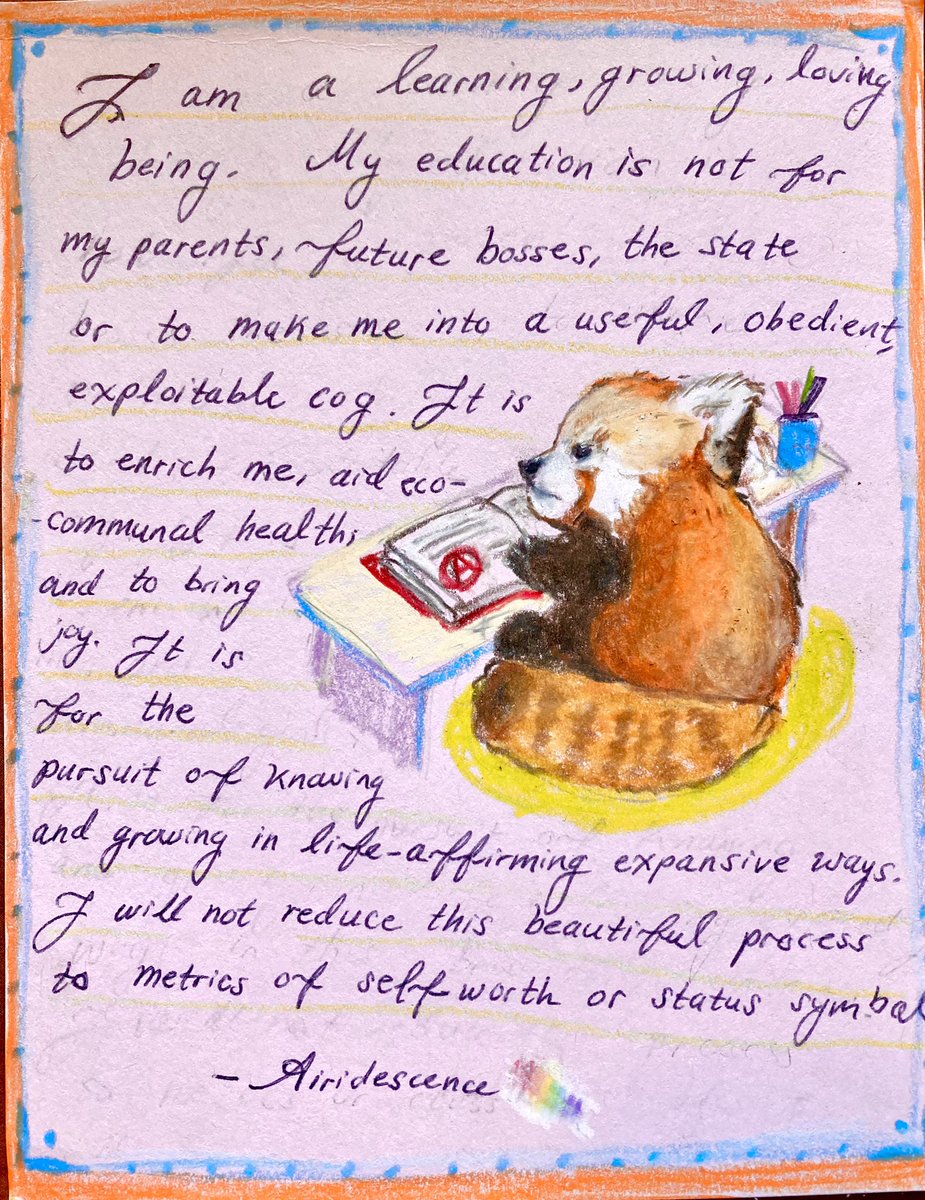 I am a learning, growing, loving
being. My education is not for
my parents, future bosses, the state
or to make me into a useful, obedient,
exploitable cog. It is
to enrich me, aid eco-
-communal health;
and to bring
joy. It is
for the
pursuit of knowing
and growing in life-affirming expansive ways.
I will not reduce this beautiful process
to metrics of self worth or status symbol
- Airidescence
A